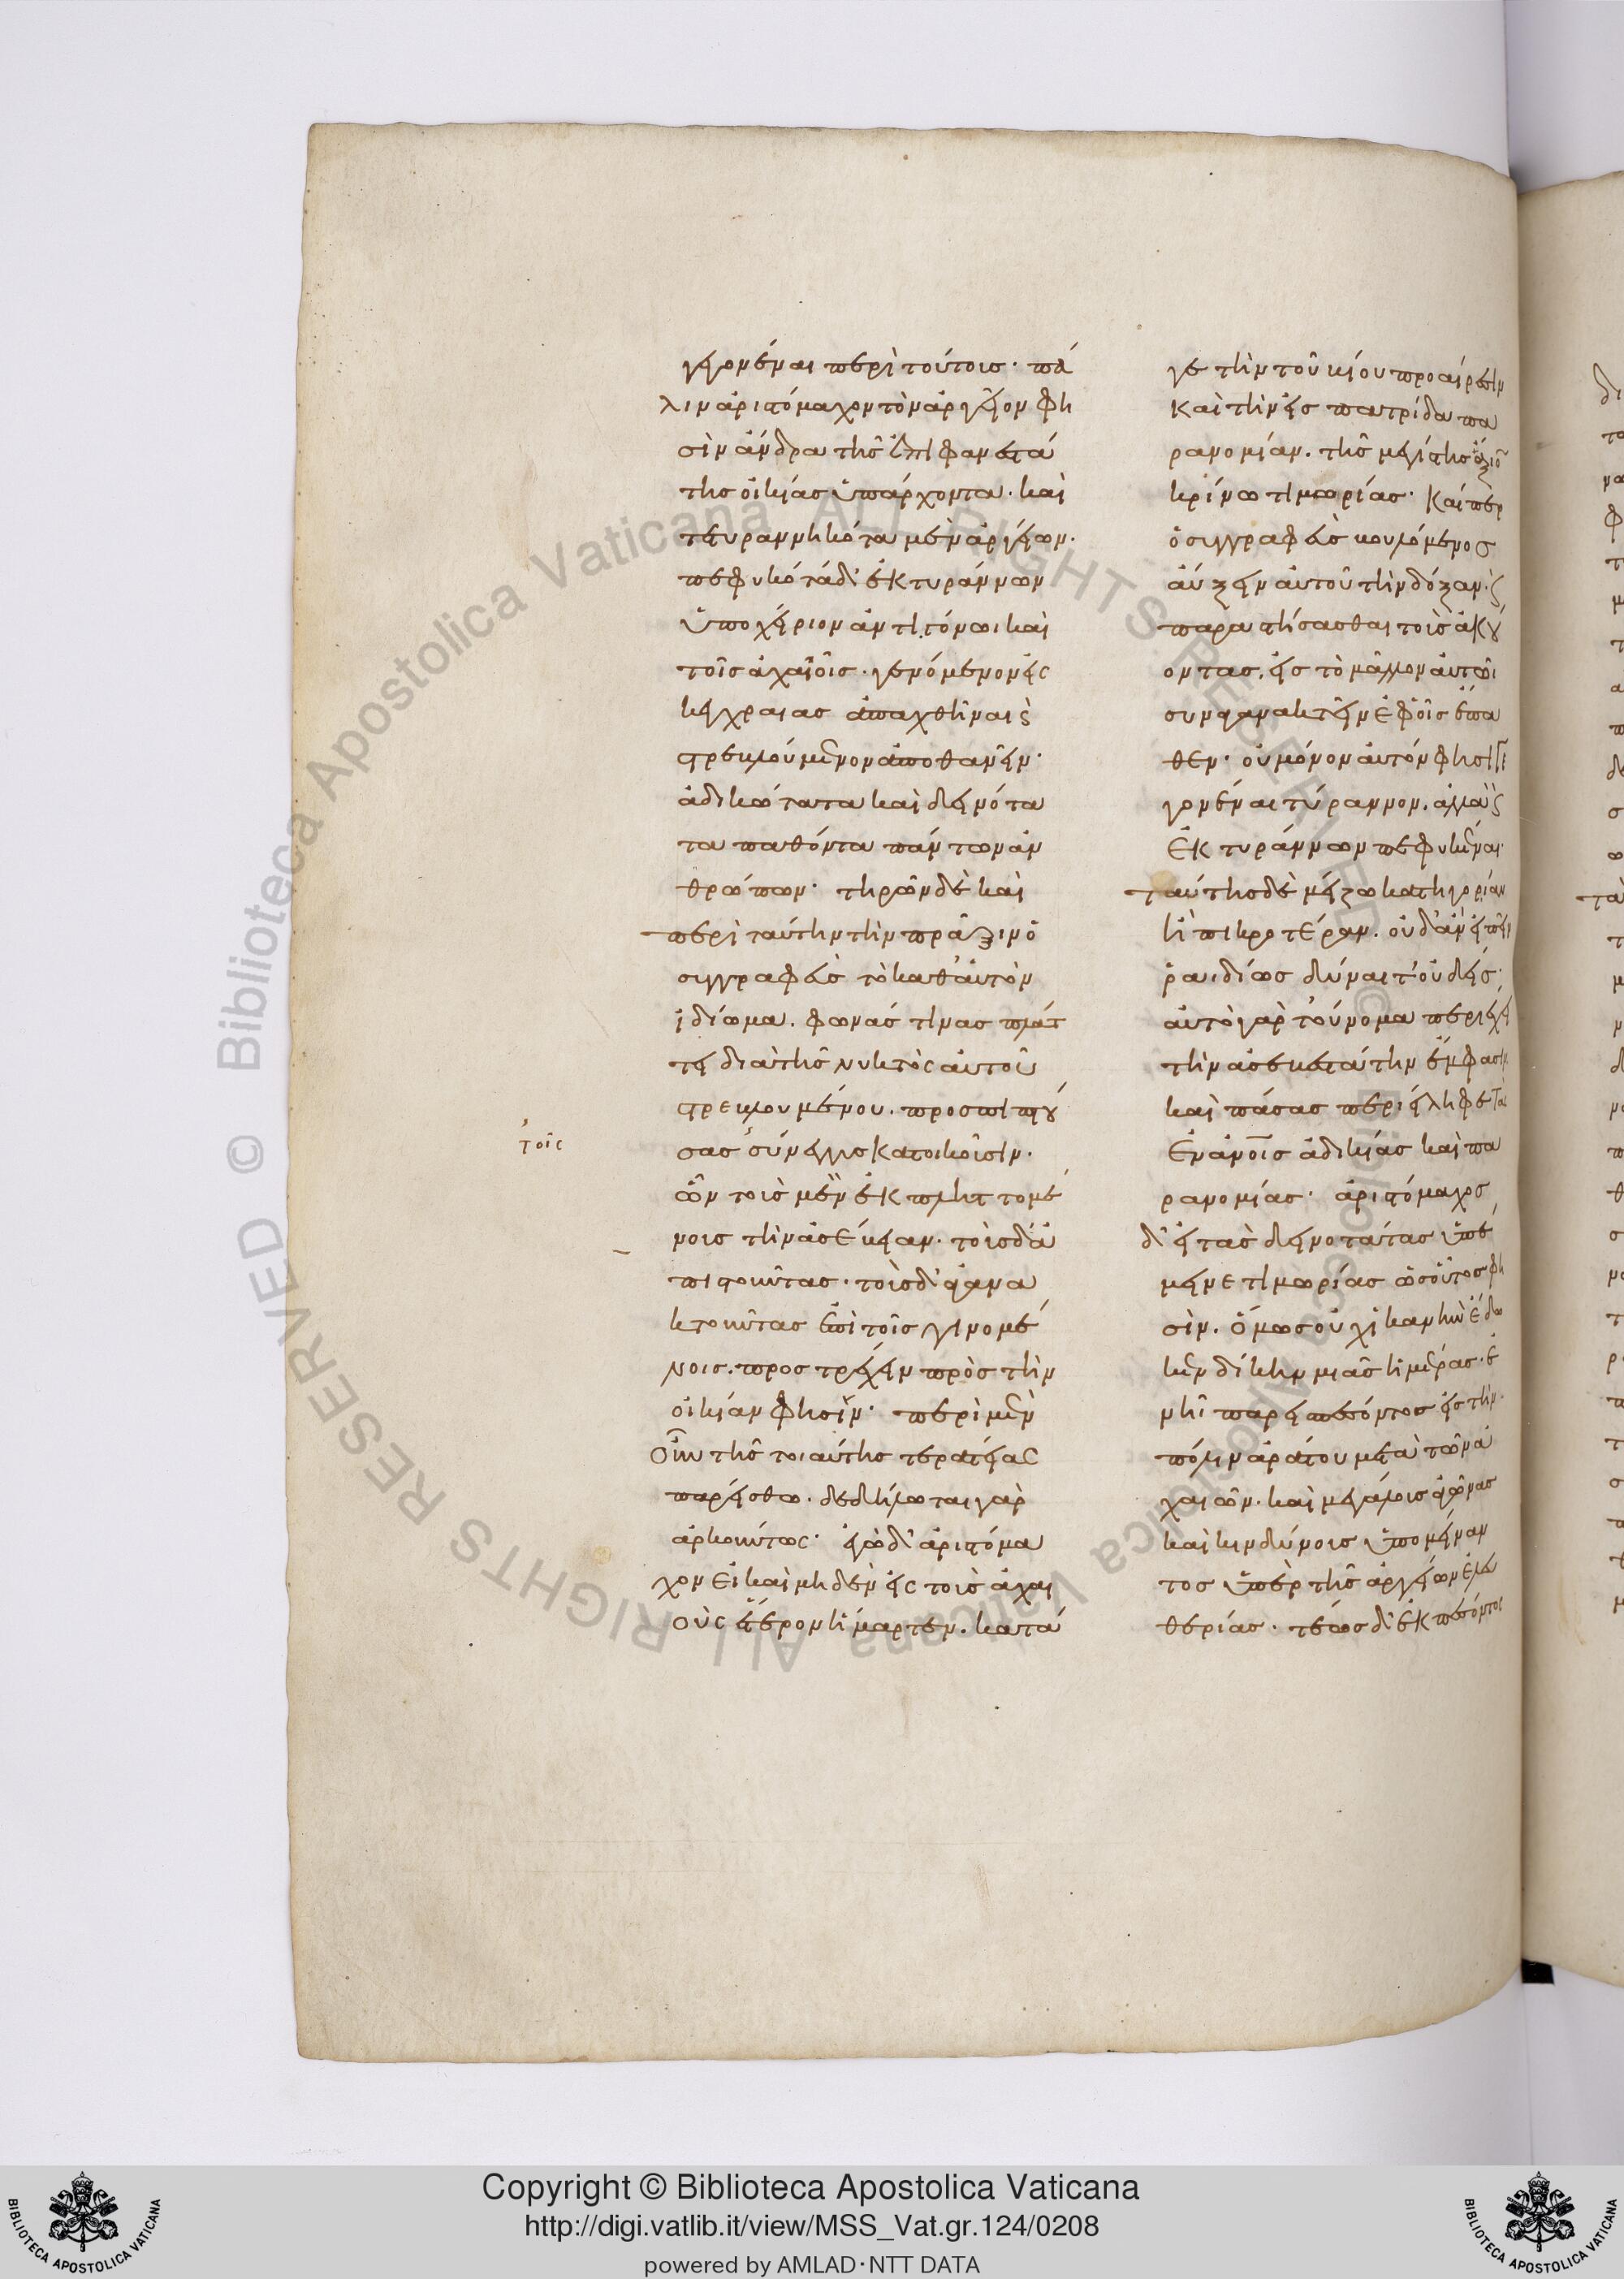 γεγονέναι περὶ τούτοις· πά
λιν ἀριστόμαχον τὸν ἀργεῖον φη
σὶν ἄνδρα τῆς ἐπιφανεστά
της οἰκίας ὑπάρχοντα· καὶ
τετυραννηκότα μὲν ἀργείων·
πεφυκότα δ' ἐκ τυράννων
ὑποχείριον ἀντιγόνωι καὶ
τοῖς ἀχαιοῖς· γενόμενον εἰς
κεγχραιας ἀπαχθῆναι ϗ
στρεβλούμενον ἀποθανεῖν·
ἀδικώτατα καὶ δεινότα
τα παθόντα πάντων ἀν
θρώπων· τηρῶν δὲ καὶ
περὶ ταύτην τὴν πρᾶξιν ὁ
συγγραφεὺς τὸ καθ' αὑτὸν
ἰδίωμα. φωνάς τινας πλάτ
τει διὰ τῆς νυκτὸς αὐτοῦ
στρεβλουμένου. προσπιπτού
σας σύνεγγυς κατοικοῦσιν·
τοῖς
ὧν τοὺς μὲν ἐκπληττομέ
νοις τὴν ἀσέβειαν· τοὺς δ' ἀ
πιστοῦντας· τοὺς δ' ἀγανα
κτοῦντας ἐπὶ τοῖς γινομέ
νοις. προστρέχειν πρὸς τὴν
οἰκίαν φησίν· περὶ μὲν
οὖν τῆς τοιαύτης τερατείας
παρείσθω. δεδήλωται γὰρ
ἀρκούντως· ἐγὼ δ' ἀριστόμα
χον εἰ καὶ μηδὲν εἰς τοὺς ἀχαι
οὺς ἕτερον ἡμαρτεν. κατά
γε τὴν τοῦ βίου προαίρεσιν
καὶ τὴν εἰς πατρίδα πα
ρανομίαν. τῆς μεγίστης ἄξιον
κρίνω τιμωρίας· καίπερ
ὁ συγγραφεὺς βουλόμενος
αὔξειν αὐτοῦ τὴν δόξαν· ϗ
παραστήσασθαι τοὺς ἀκού
οντας. εἰς τὸ μᾶλλον αὐτῶι
συναγανακτεῖν ἐφ' οἷς ἔπα
θεν· οὐ μόνον αὐτόν φησι γε
γονέναι τύραννον. ἀλλὰ ϗ
ἐκ τυράννων πεφυκέναι·
ταύτης δὲ μείζω κατηγορίαν
ἢ πικροτέραν. οὐδ' ἂν εἰπεῖν
ῥαιδίως δύναιτ' οὐδείς·
αὐτὸ γὰρ τοὔνομα περιέχει
τὴν ἀσεβεστάτην ἔμφασιν
καὶ πάσας περιείληφε τὰς
ἐν ἀνοῖς ἀδικίας καὶ πα
ρανομίας· ἀριστόμαχος
δ' εἰ τὰς δεινοτάτας ὑπέ
μεινε τιμωρίας ὡς οὗτος φη
σὶν. ὅμως οὐχ ἱκανὴν ἔδω
κεν δίκην μιᾶς ἡμέρας· ἐ
ν ἧι παρεισπεσόντος εἰς τὴν
πόλιν ἀράτου μετὰ τῶν ἀ
χαιῶν. καὶ μεγάλους ἀγῶνας
καὶ κινδύνους ὑπομείναν
τος ὑπὲρ τῆς ἀργείων ἐλευ
θερίας· τέως δ' ἐκπεσόντος
Copyright © Biblioteca Apostolica Vaticana
http://digi.vatlib.it/view/MSS_Vat.gr.124/0208
powered by AMLAD·NTT DATA